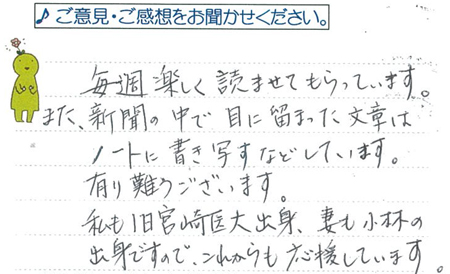 ♪ご意見・ご感想をお聞かせください。
毎週楽しく読ませてもらっています。
また、新聞の中で目に留まった文章は
ノートに書き写すなどしています。
有り難うございます。
私も旧宮崎医大出身、妻も小林の
出身ですので、これからも応援しています。